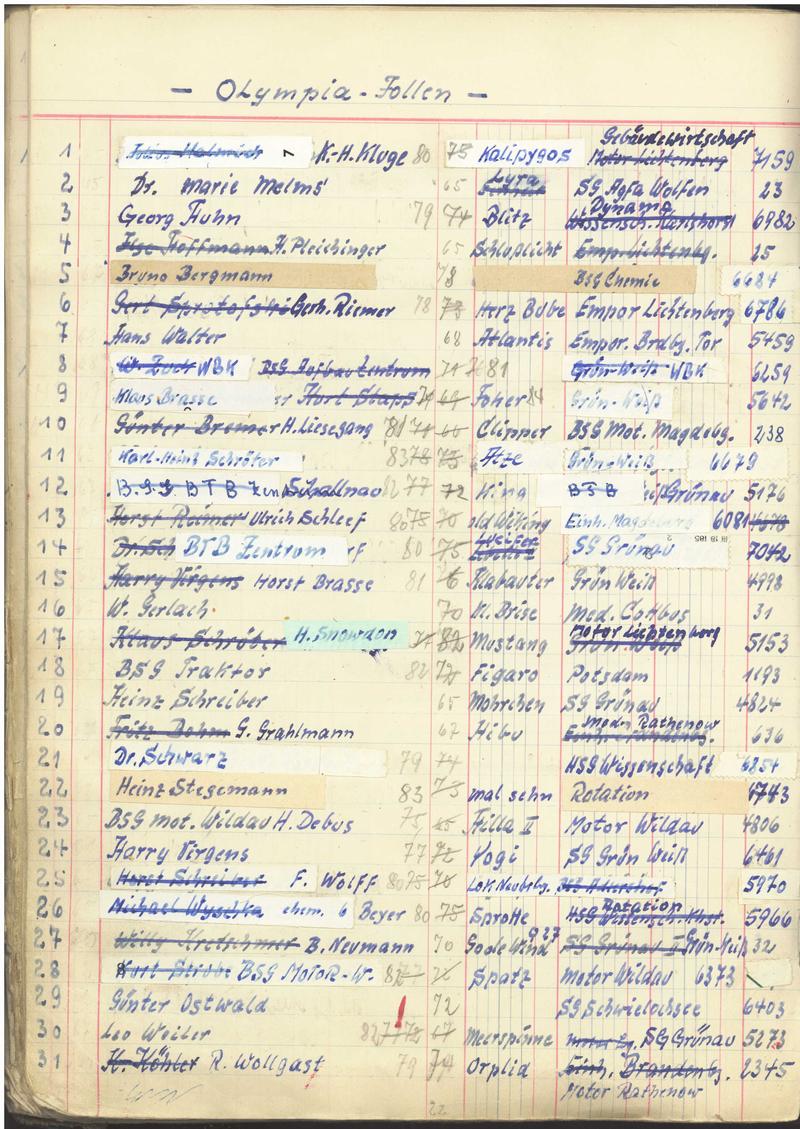 - OLympia-Jollen -
Gebäudewirtschaft
1 K.-H. Kluge 80 75 Kalipygos Motor Lichtenberg 7159
Lyra
2 Dr. Marie Melms 65 SG Agfa Wolfen 23
Dynamo
3 Georg Huhn 79 74 Blitz Wissensch. Karlshorst 6982
4 Ilse Hoffmann H. Pleichinger 65 Schlußlicht Emp. Lichtenbg. 25
5 Bruno Bergmann 78 BSG Chemie 6684
6 Gert Sprotofski Gerh. Riemer 78 73 Herz Bube Empor Lichtenberg 6786
7 Hans Walter 68 Atlantis Empor. Brdbg. Tor 5459
8 WBK BSG Aufbau Zentrum 81 Grün-Weiß WBK 6259
9 Klaus Brasse Kurt Stapf 69 84 Grün-Weiß 5642
10 Günter Bremer H. Liesegang 81 71 66 Clipper BSG Mot. Magdebg. 238
11 Karl-Heinz Schröter 83 78 75 Atze Grün-Weiß 6679
12 B.S.G BTB Zen 82 77 72 King BTB Grünau 5176
13 Horst Reimer Ulrich Schleef 80 75 70 old Wiking Einh. Magdeburg 6081 4678
Luzifer
14 Dr. Sch BTB Zentrum 80 75 SG Grünau 7042
15 Harry Virgens Horst Brasse 81 Klabauter Grün Weiß 4998
16 W. Gerlach 70 N. Brise Med. Cottbus 31
Motor Lichtenberg
17 Klaus Schröter H. Snowdon 82 Mustang Grün Weiß 5153
18 BSG Traktor 82 72 Figaro Potsdam 1193
19 Heinz Schreiber 65 Mohrchen SG Grünau 4824
medn Rathenow
20 Fritz Dohm G. Grahlmann 67 Hibu Einh. Brandenbg. 636
21 Dr. Schwarz 79 74 HSG Wissenschaft 6854
22 Heinz Stegemann 83 73 mal sehn Rotation 4743
23 BSG mot. Wildau H. Debus 75 65 Hilla II Motor Wildau 4806
24 Harry Virgens 77 72 Yogi SG Grün Weiß 6461
25 Horst Schreiber F. Wolff 80 75 70 Lok. Neubrbg. 5970
Rotation
26 Michael Wyschka chem. 6 Beyer 80 75 Sprotte HSG Wissensch. 5966
G 27
27 Willy Kretschmer B. Neumann 70 Goode Wind SG Grünau II Grün-Weiß 32
28 Kurt Strobe BSG MotoR-W. 82 Spatz motor Wildau 6373
29 Günter Ostwald 72 SG Schwielochsee 6403
30 Leo Weiler 82 77 72 67 Meerspinne SG Grünau 5273
31 H. Köhler R. Wollgast 79 74 Orplid Einh. Brandenbg. 2345
Motor Rathenow
22